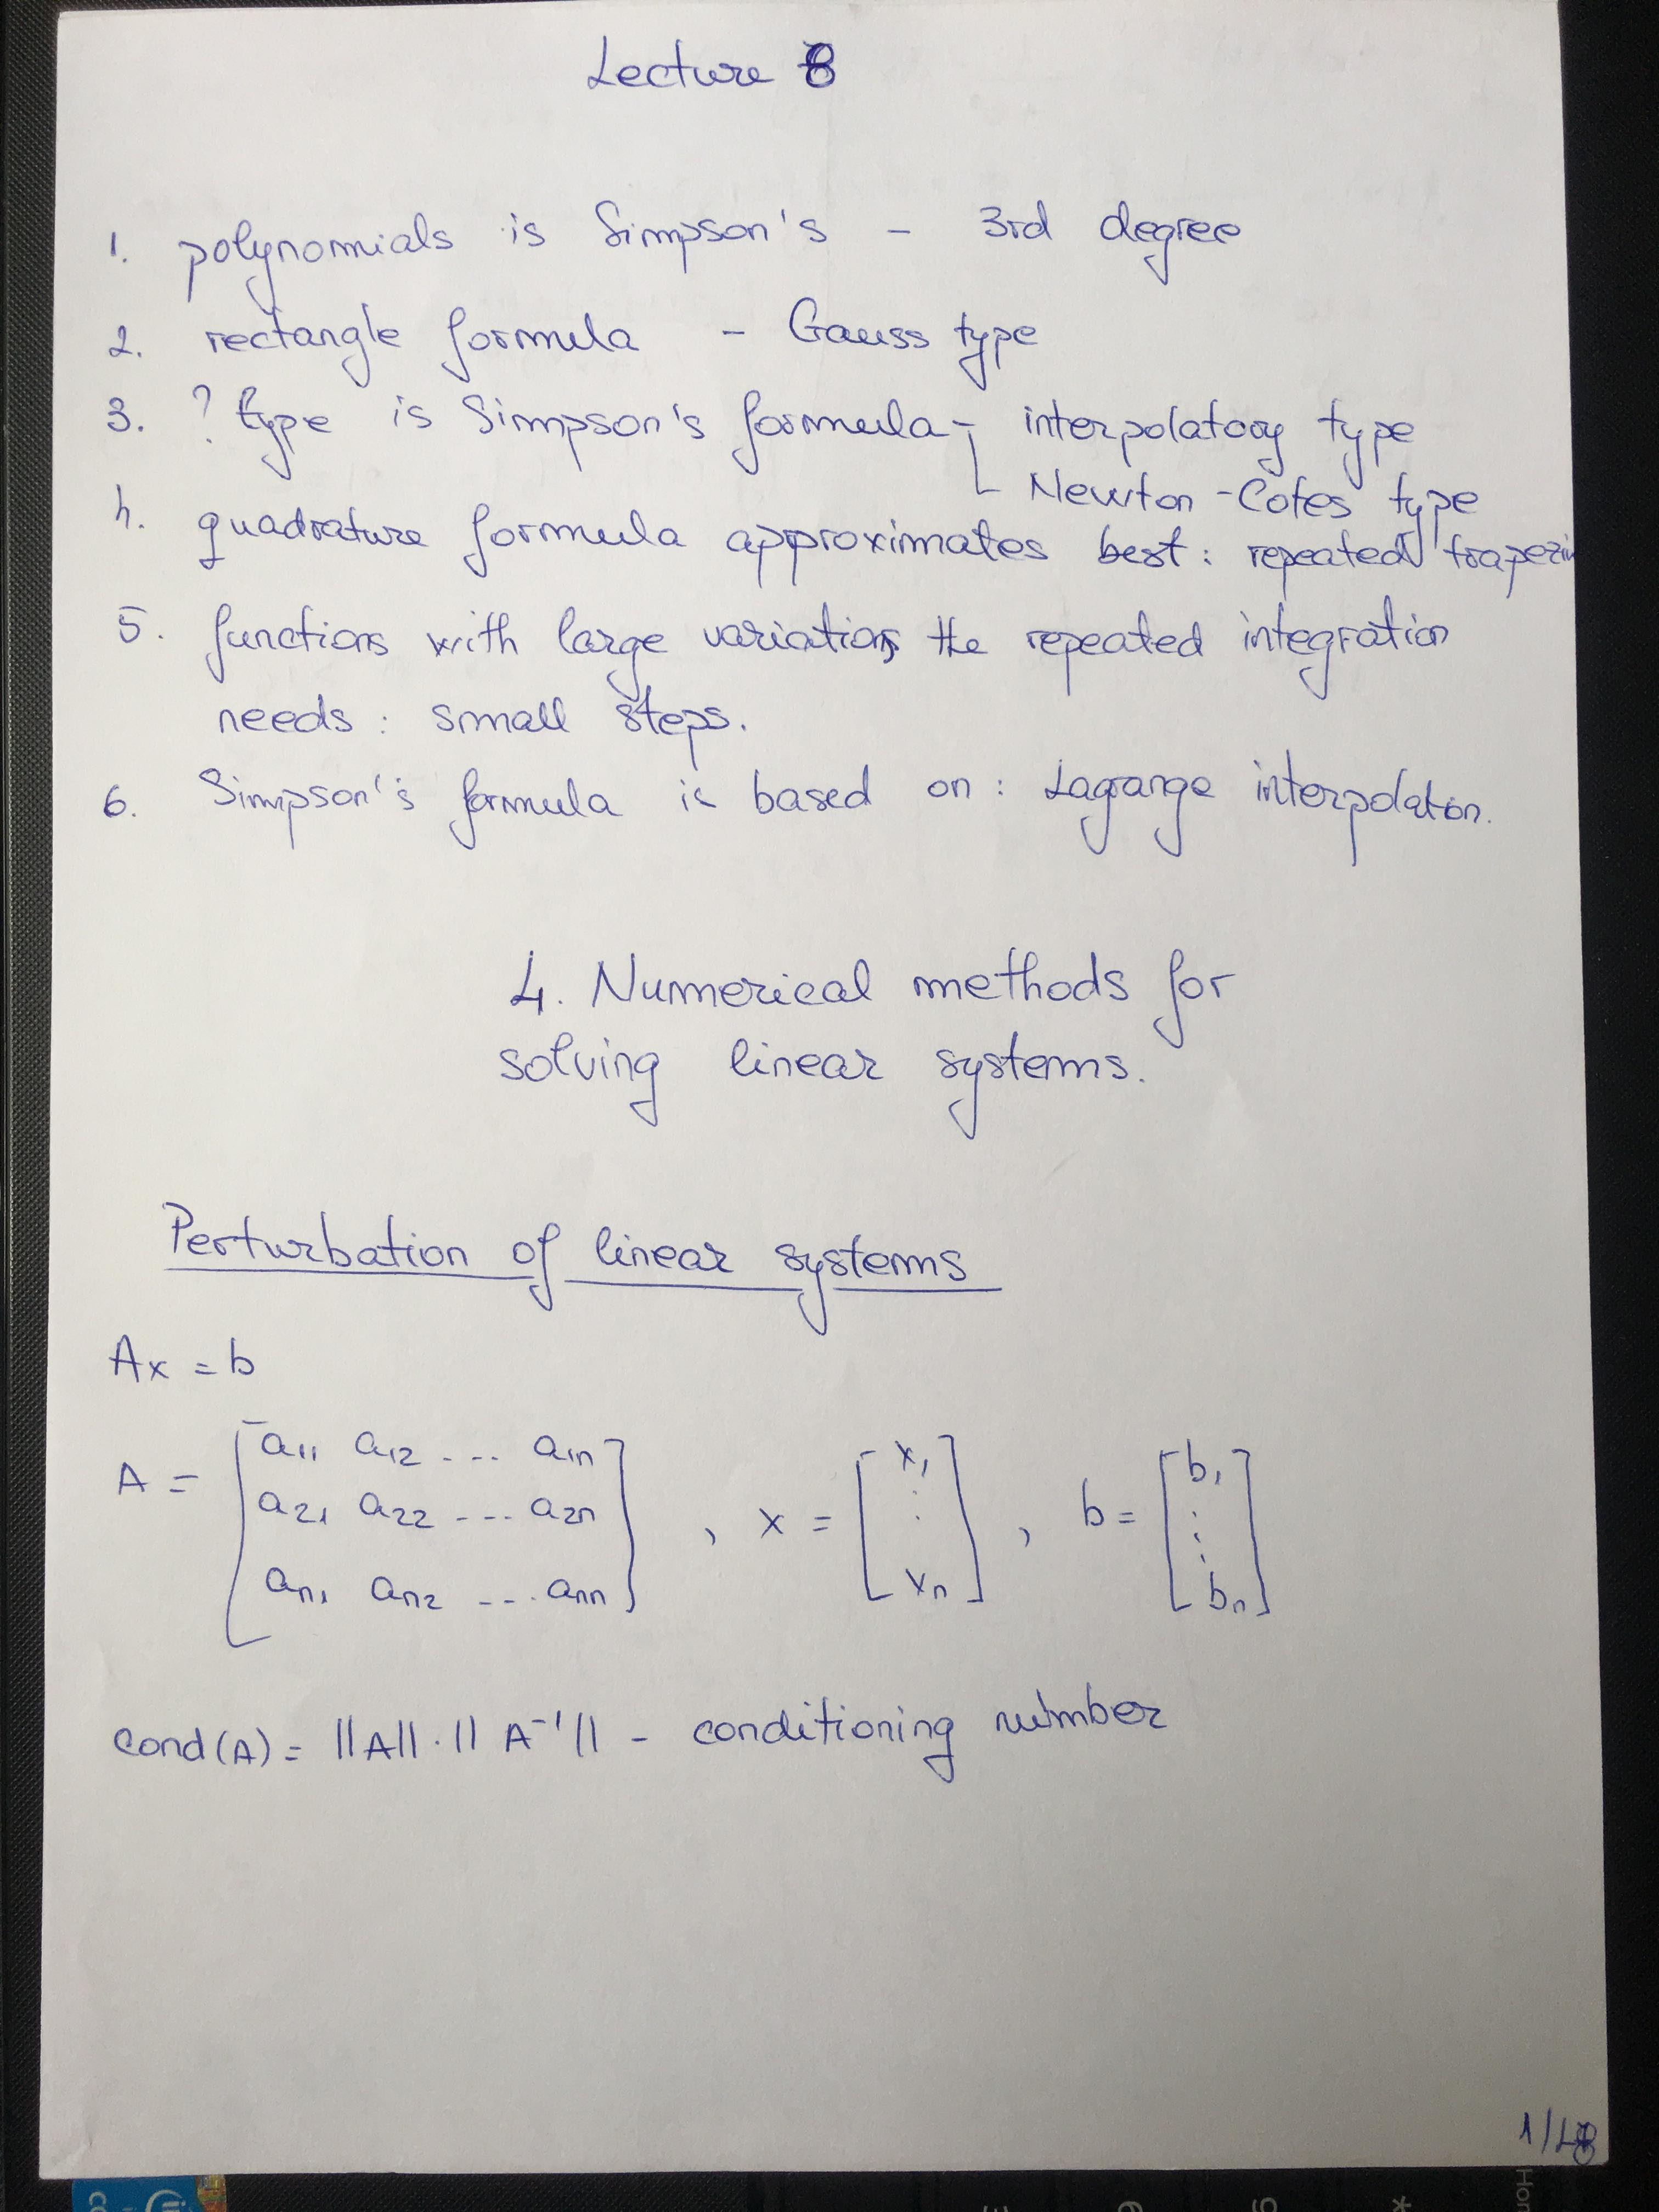 Lecture 8
1. polynomials is Simpson's - 3rd degree
2. rectangle formula - Gauss type
3. ? type is Simpson's formula - interpolatory type
Newton-Cotes type
4. quadrature formula approximates best: repeated trapeziu
5. functions with large variations the repeated integration
needs: small steps.
6. Simpson's formula is based on: Lagrange interpolation.
4. Numerical methods for
solving linear systems.
Perturbation of linear systems
Ax = b
A = [a11 a12 ... a1n
a21 a22 ... a2n
an1 an2 ... ann] , x = [x1 ⋮ xn] , b = [b1 ⋮ bn]
cond(A) = ||A|| · ||A⁻¹|| - conditioning number
1/L8